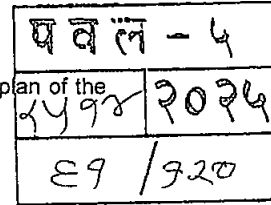 पवल - ५
plan of the
२५१४ २०२५
६१ / १२०